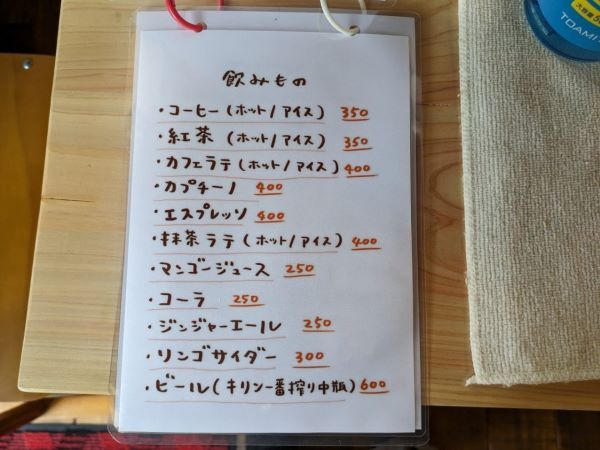 飲みもの
・コーヒー(ホット/アイス) 350
・紅茶 (ホット/アイス) 350
・カフェラテ(ホット/アイス) 400
・カプチーノ 400
・エスプレッソ 400
・抹茶ラテ(ホット/アイス) 400
・マンゴージュース 250
・コーラ 250
・ジンジャーエール 250
・リンゴサイダー 300
・ビール(キリン一番搾り中瓶) 600